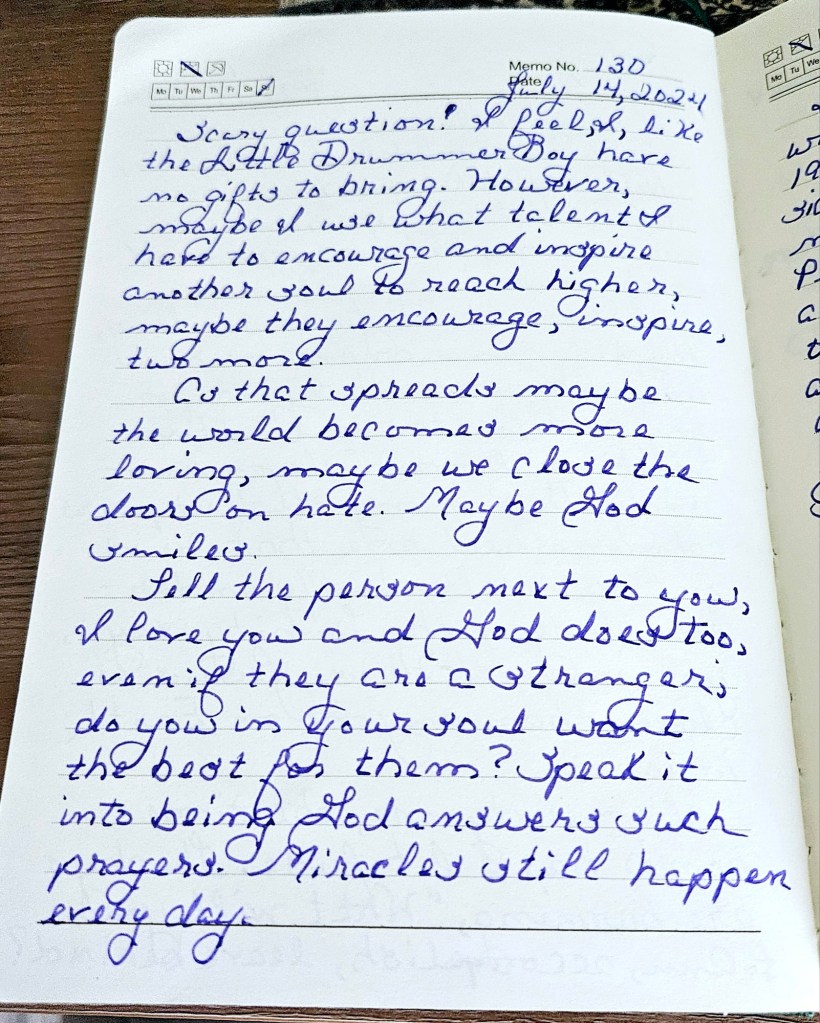 Memo No. 130
Mo Tu We Th Fr Sa
Date July 14, 2024
Scary question! I feel, I, like
the Little Drummer Boy have
no gifts to bring. However,
maybe I use what talent I
have to encourage and inspire
another soul to reach higher,
maybe they encourage, inspire,
two more.
As that spreads maybe
the world becomes more
loving, maybe we close the
doors on hate. Maybe God
smiles.
Tell the person next to you,
I love you and God does too,
even if they are a stranger,
do you in your soul want
the best for them? Speak it
into being God answers such
prayers. Miracles still happen
every day.
Mo Tu We